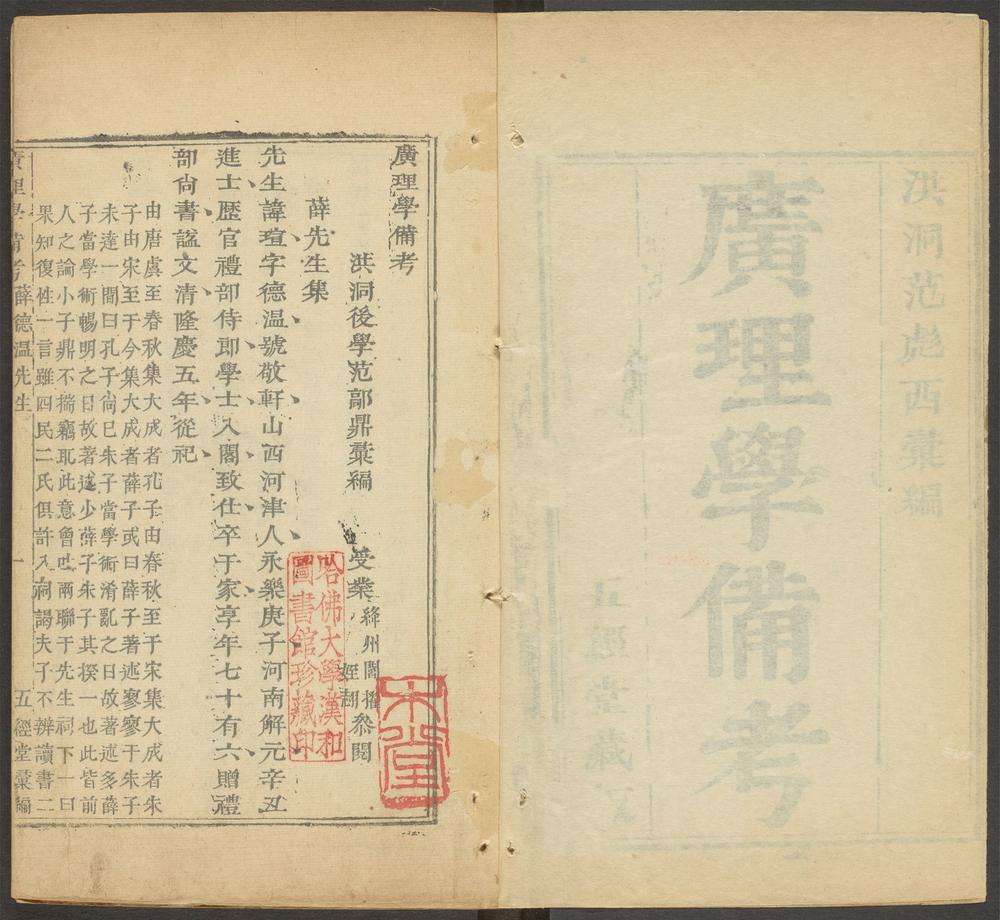 洪洞范彪西彚編
廣理學備考
五經堂藏
廣理學備考
洪洞後學范鄗鼎彚編 受業絳州閻擢
侄翮
叅閱
薛先生集
先生諱瑄字德温號敬軒山西河津人永樂庚子河南解元辛丑
進士歷官禮部侍郎學士入閣致仕卒于家享年七十有六贈禮
部尚書諡文清隆慶五年從祀
由唐虞至春秋集大成者孔子由春秋至于宋集大成者朱
子由宋至于今集大成者薛子或曰薛子著述寥寥于朱子
未達一間曰孔子尚巳朱子當學術淆亂之日故著述多薛
子當學術暢明之日故著述少薛子朱子其揆一也此皆前
人之論小子鼎不揣竊取此意曾兩聯于先生祠下一曰
果知復性一言雖四民二氏俱許入祠謁夫子不辨讀書二
廣理學備考 薛德温先生 一 五經堂彚編
哈佛大學漢和
圖書館珍藏印
木堂